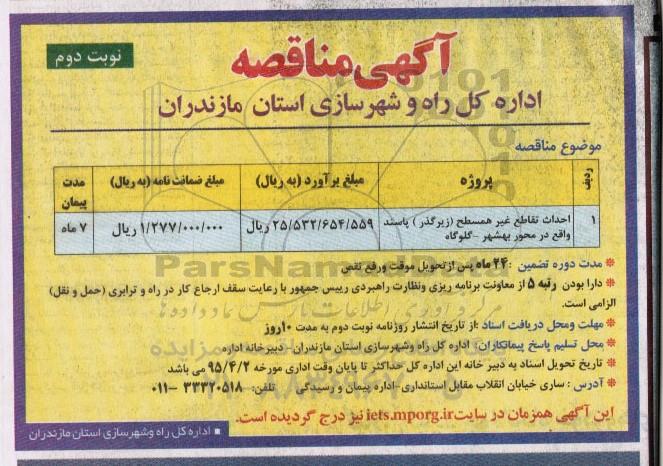 نوبت دوم
آگهی مناقصه
اداره کل راه و شهرسازی استان مازندران
موضوع مناقصه
ردیف
پروژه
مبلغ برآورد (به ریال)
مبلغ ضمانت نامه (به ریال)
مدت پیمان
۱
احداث تقاطع غیر همسطح (زیرگذر) پاسند
واقع در محور بهشهر -گلوگاه
۲۵/۵۳۲/۶۵۴/۵۵۹ ریال
۱/۲۷۷/۰۰۰/۰۰۰ ریال
۷ ماه
* مدت دوره تضمین : ۲۴ ماه پس از تحویل موقت ورفع نقص
* دارا بودن رتبه ۵ از معاونت برنامه ریزی ونظارت راهبردی رییس جمهور با رعایت سقف ارجاع کار در راه و ترابری (حمل و نقل)
الزامی است.
* مهلت ومحل دریافت اسناد :از تاریخ انتشار روزنامه نوبت دوم به مدت ۱۰روز
* محل تسلیم پاسخ پیمانکاران: اداره کل راه وشهرسازی استان مازندران- دبیرخانه اداره
* تاریخ تحویل اسناد به دبیر خانه این اداره کل حداکثر تا پایان وقت اداری مورخه ۹۵/۴/۲ می باشد
* آدرس : ساری خیابان انقلاب مقابل استانداری-اداره پیمان و رسیدگی تلفن: ۳۳۳۲۰۵۱۸ -۰۱۱
این آگهی همزمان در سایت iets.mporg.ir نیز درج گردیده است.
اداره کل راه وشهرسازی استان مازندران
ParsNamadData